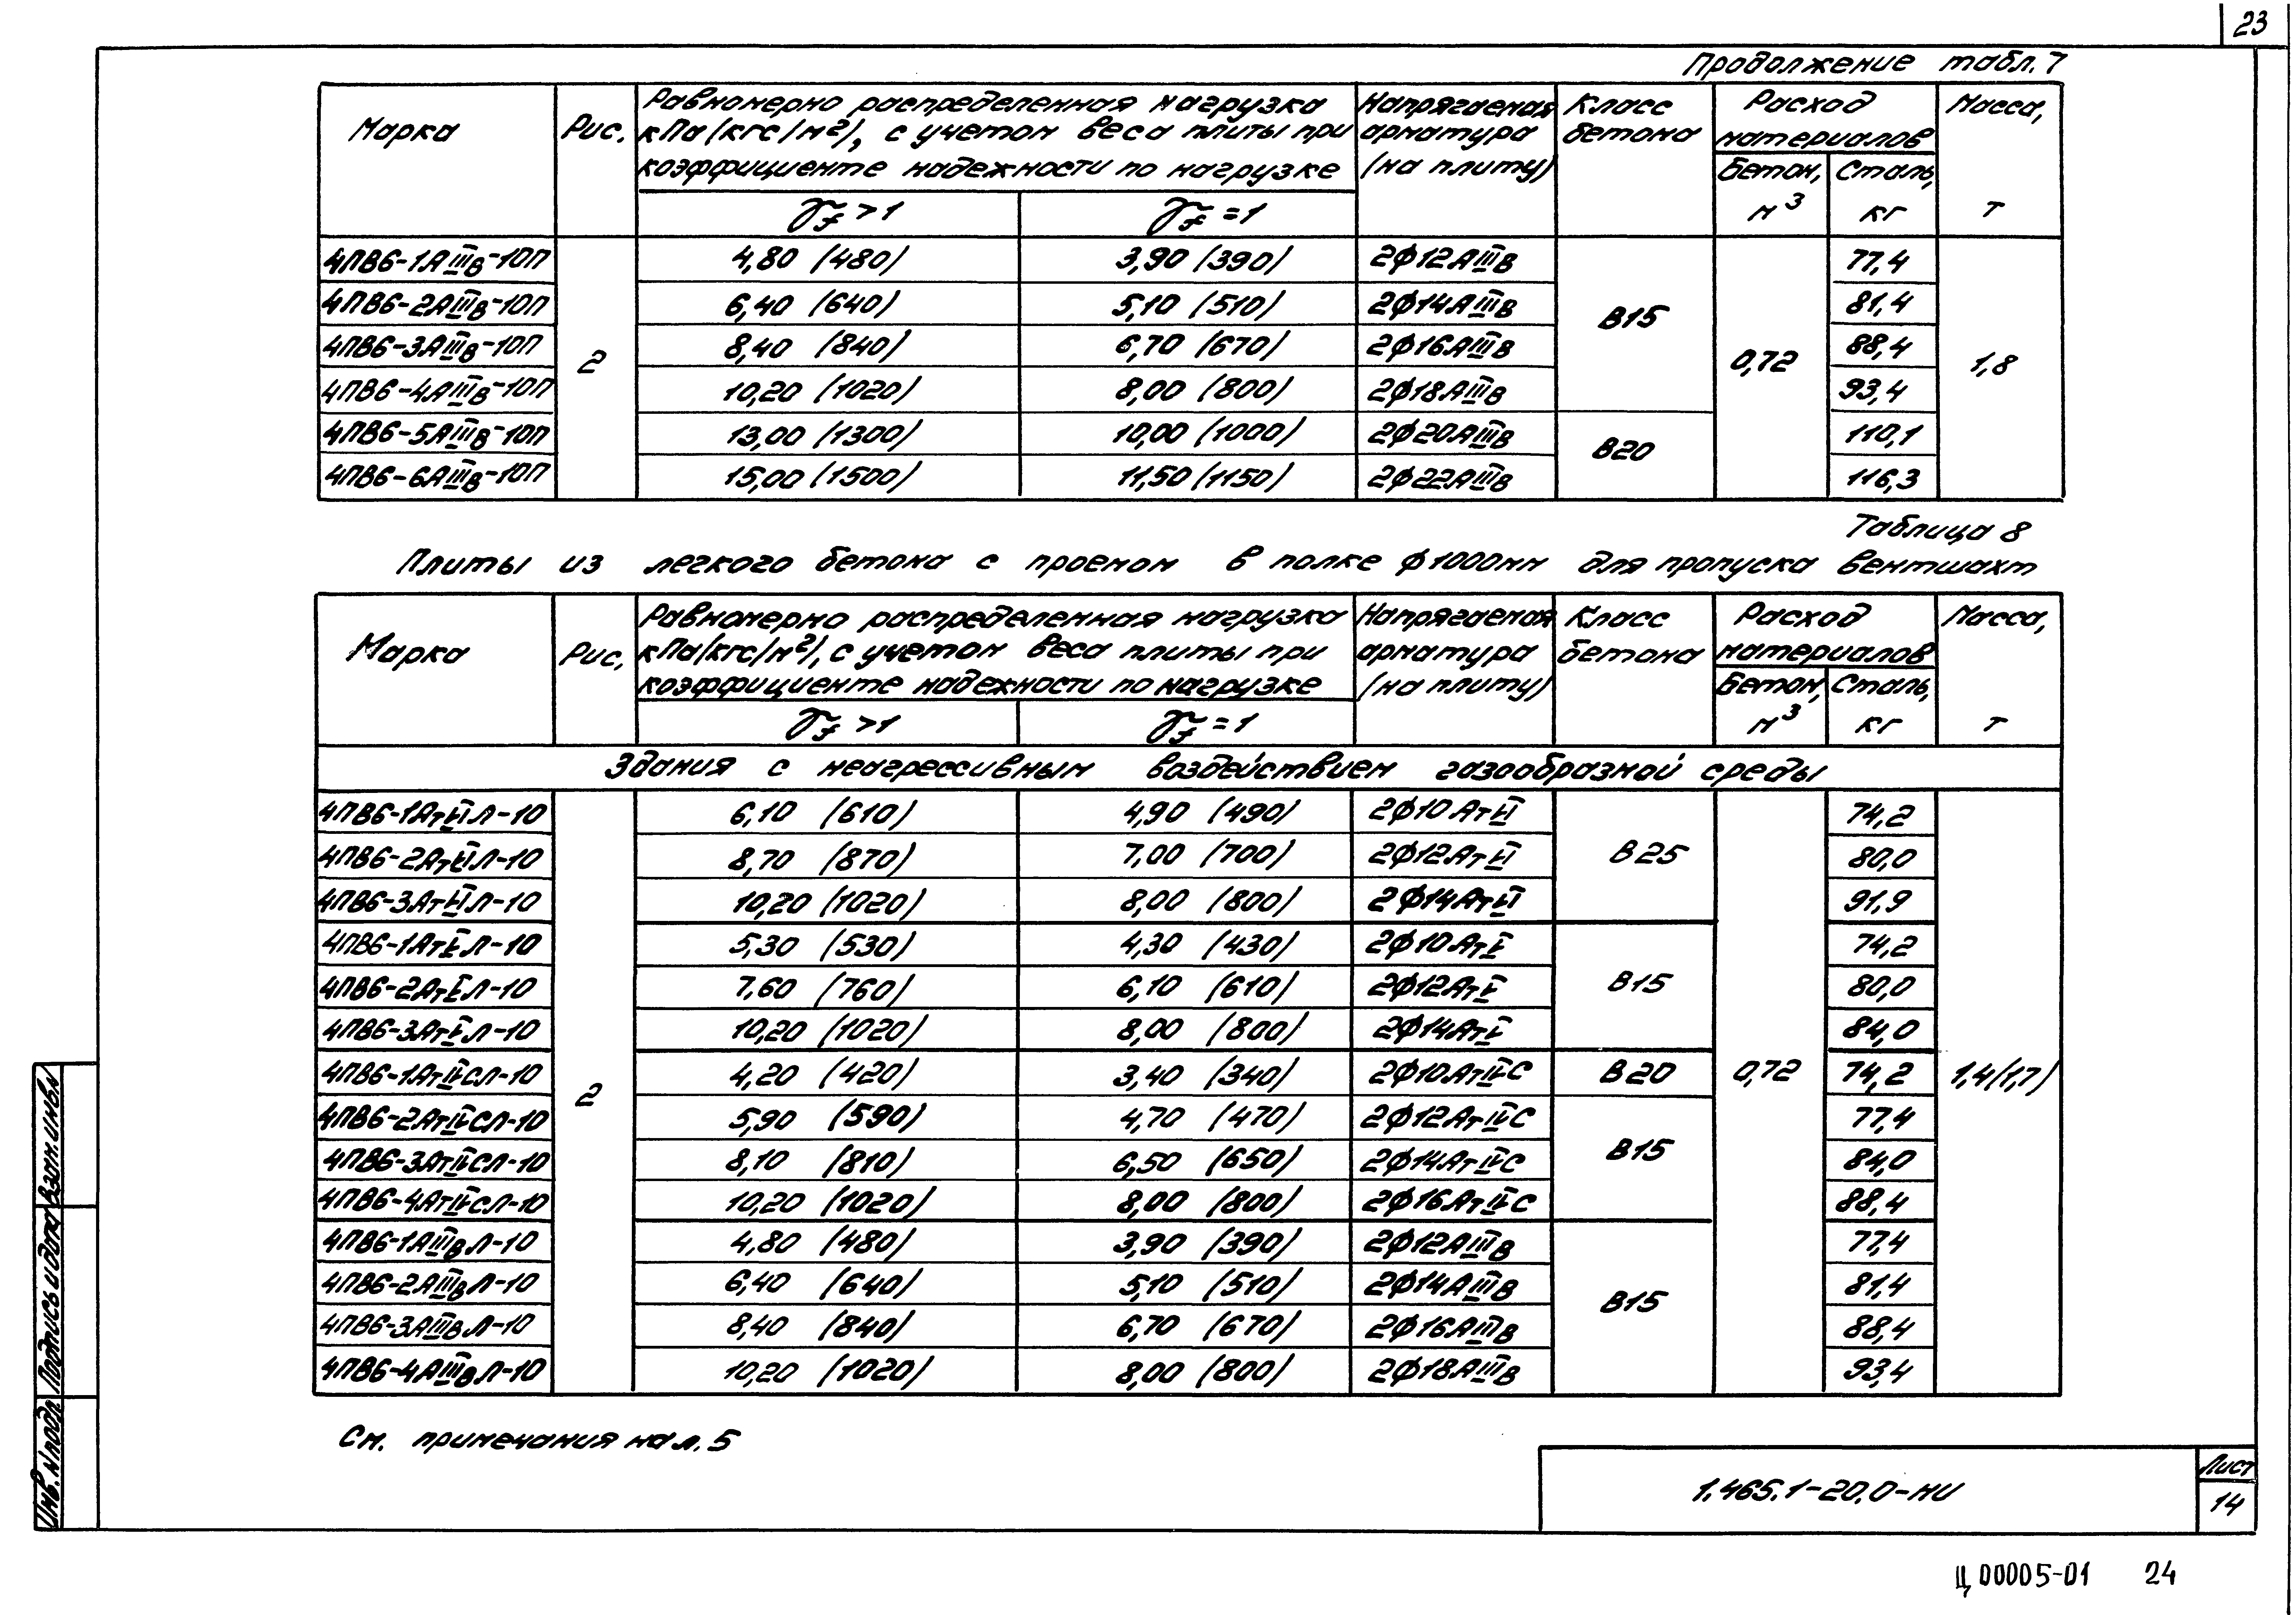 23
Продолжение табл. 7
Марка Рис. Равномерно распределенная нагрузка кПа (кгс/м²), с учетом веса плиты при коэффициенте надежности по нагрузке Напрягаемая арматура (на плиту) Класс бетона Расход материалов Масса, т
γf > 1 γf = 1 Бетон, м³ Сталь, кг
4ПВ6-1АIIIв-10П 2 4,80 (480) 3,90 (390) 2ф12АIIIв В15 0,72 77,4 1,8
4ПВ6-2АIIIв-10П 6,40 (640) 5,10 (510) 2ф14АIIIв 81,4
4ПВ6-3АIIIв-10П 8,40 (840) 6,70 (670) 2ф16АIIIв 88,4
4ПВ6-4АIIIв-10П 10,20 (1020) 8,00 (800) 2ф18АIIIв 93,4
4ПВ6-5АIIIв-10П 13,00 (1300) 10,00 (1000) 2ф20АIIIв В20 110,1
4ПВ6-6АIIIв-10П 15,00 (1500) 11,50 (1150) 2ф22АIIIв 116,3
Таблица 8
Плиты из легкого бетона с проемом в полке ф1000мм для пропуска вентшахт
Марка Рис. Равномерно распределенная нагрузка кПа (кгс/м²), с учетом веса плиты при коэффициенте надежности по нагрузке Напрягаемая арматура (на плиту) Класс бетона Расход материалов Масса, т
γf > 1 γf = 1 Бетон, м³ Сталь, кг
Здания с неагрессивным воздействием газообразной среды
4ПВ6-1АтVIЛ-10 2 6,10 (610) 4,90 (490) 2ф10АтVI В25 0,72 74,2 1,4(1,7)
4ПВ6-2АтVIЛ-10 8,70 (870) 7,00 (700) 2ф12АтVI 80,0
4ПВ6-3АтVIЛ-10 10,20 (1020) 8,00 (800) 2ф14АтVI 91,9
4ПВ6-1АтVЛ-10 5,30 (530) 4,30 (430) 2ф10АтV В15 74,2
4ПВ6-2АтVЛ-10 7,60 (760) 6,10 (610) 2ф12АтV 80,0
4ПВ6-3АтVЛ-10 10,20 (1020) 8,00 (800) 2ф14АтV 84,0
4ПВ6-1АтIVСЛ-10 4,20 (420) 3,40 (340) 2ф10АтIVС В20 74,2
4ПВ6-2АтIVСЛ-10 5,90 (590) 4,70 (470) 2ф12АтIVС В15 77,4
4ПВ6-3АтIVСЛ-10 8,10 (810) 6,50 (650) 2ф14АтIVС 84,0
4ПВ6-4АтIVСЛ-10 10,20 (1020) 8,00 (800) 2ф16АтIVС 88,4
4ПВ6-1АIIIвЛ-10 4,80 (480) 3,90 (390) 2ф12АIIIв В15 77,4
4ПВ6-2АIIIвЛ-10 6,40 (640) 5,10 (510) 2ф14АIIIв 81,4
4ПВ6-3АIIIвЛ-10 8,40 (840) 6,70 (670) 2ф16АIIIв 88,4
4ПВ6-4АIIIвЛ-10 10,20 (1020) 8,00 (800) 2ф18АIIIв 93,4
См. примечания на л. 5
Инв. N подл. Подпись и дата Взам. инв. N
1.465.1-20.0-НИ
Лист
14
Ц00005-01 24